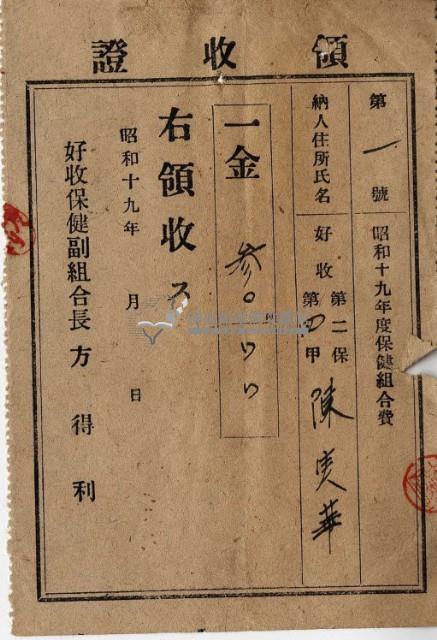 領收證
第一號 昭和十九年度保健組合費
納人住所氏名 好收 第二保 第四甲 陳
一金 参〇
右領收ス
昭和十九年 月 日
好收保健副組合長 方得利